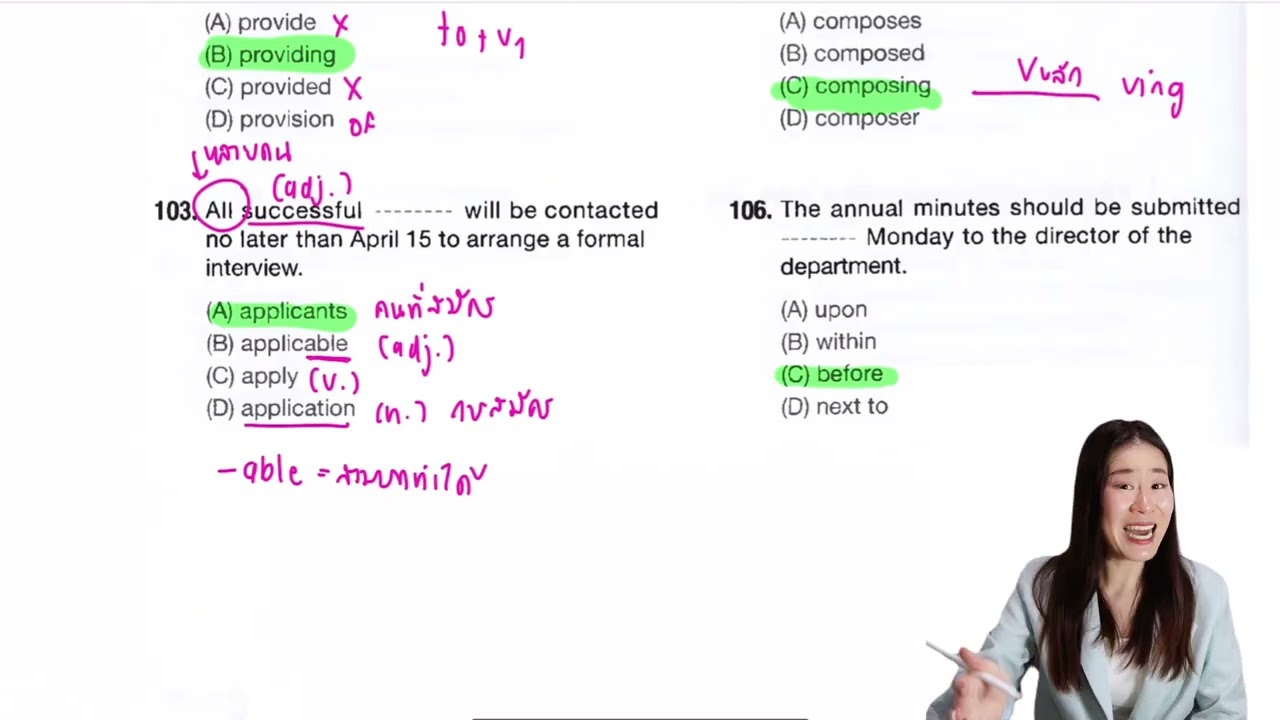 (A) provide X
to + v1
(B) providing
(C) provided X
(D) provision of
หลายคน
(adj.)
103. All successful -------- will be contacted
no later than April 15 to arrange a formal
interview.
(A) applicants คนที่สมัคร
(B) applicable (adj.)
(C) apply (v.)
(D) application (n.) การสมัคร
-able = สามารถทำได้
(A) composes
(B) composed
(C) composing
Vหลัก ving
(D) composer
106. The annual minutes should be submitted
-------- Monday to the director of the
department.
(A) upon
(B) within
(C) before
(D) next to